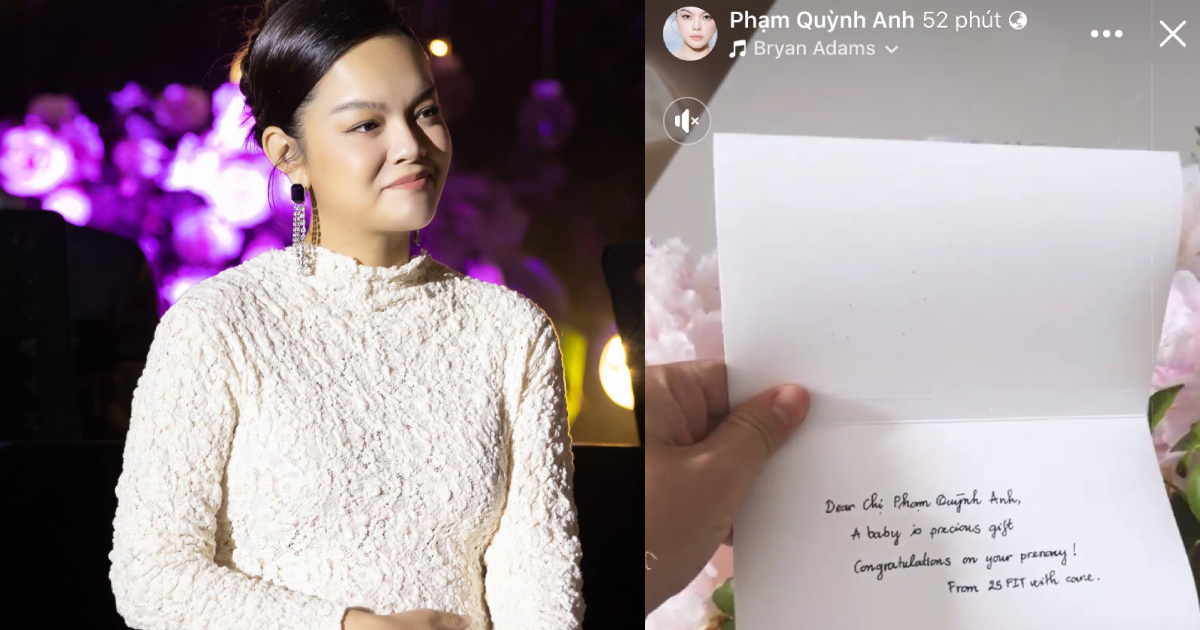 Phạm Quỳnh Anh 52 phút
Bryan Adams
Dear Chị Phạm Quỳnh Anh,
A baby is precious gift
Congratulations on your prenancy!
From 25 FIT with care.